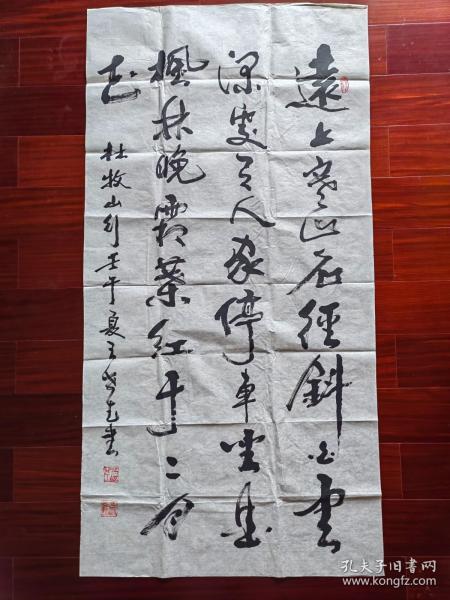 遠上寒山石徑斜白雲
深處有人家停車坐愛
楓林晚霜葉紅于二月
花
杜牧山行壬午夏王
書
孔夫子旧书网
www.kongfz.com